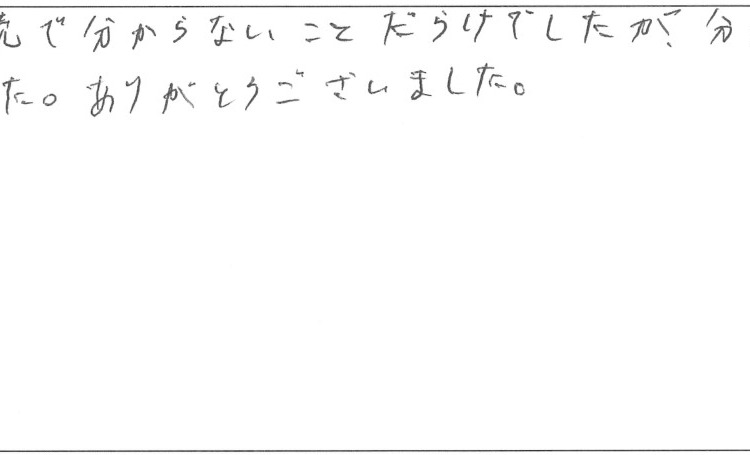 で分からないことだらけでしたが、分
た。ありがとうございました。